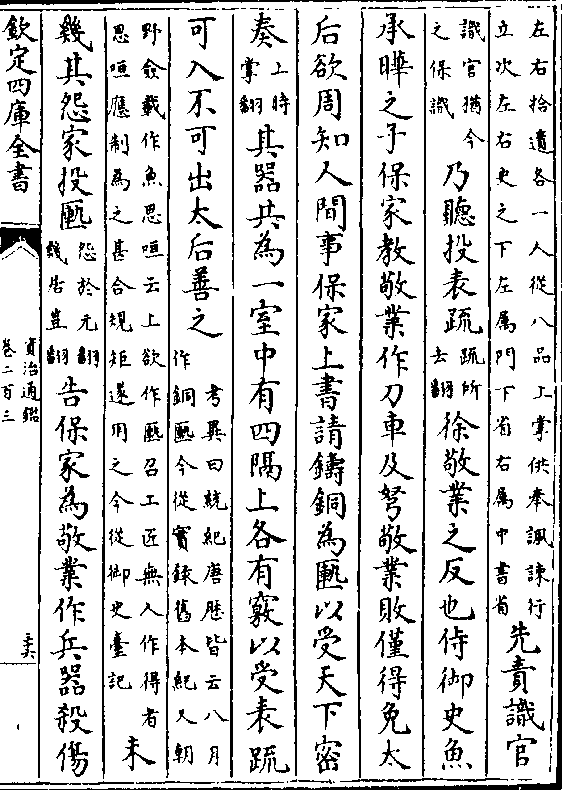 左右拾遺各一人從八品上掌供奉諷諫行
立次左右史之下左属門下省右属中書省
先責識官
識官猶今
之保識
乃聽投表疏
疏所
去翻
徐敬業之反也侍御史魚
承曄之子保家教敬業作刀車及弩敬業敗僅得免太
后欲周知人間事保家上書請鑄銅為匭以受天下密
奏
上時
掌翻
其器共為一室中有四隔上各有竅以受表疏
可入不可出太后善之
考異曰統紀唐歴皆云八月
作銅匭今從實錄舊本紀又朝
野僉載作魚思咺云上欲作匭召工匠無人作得者
思咺應制為之甚合規矩遂用之今從御史臺記
未
幾其怨家投匭
怨於元翻
幾居豈翻
告保家為敬業作兵器殺傷
欽定四庫全書
資治通鑑
卷二百三